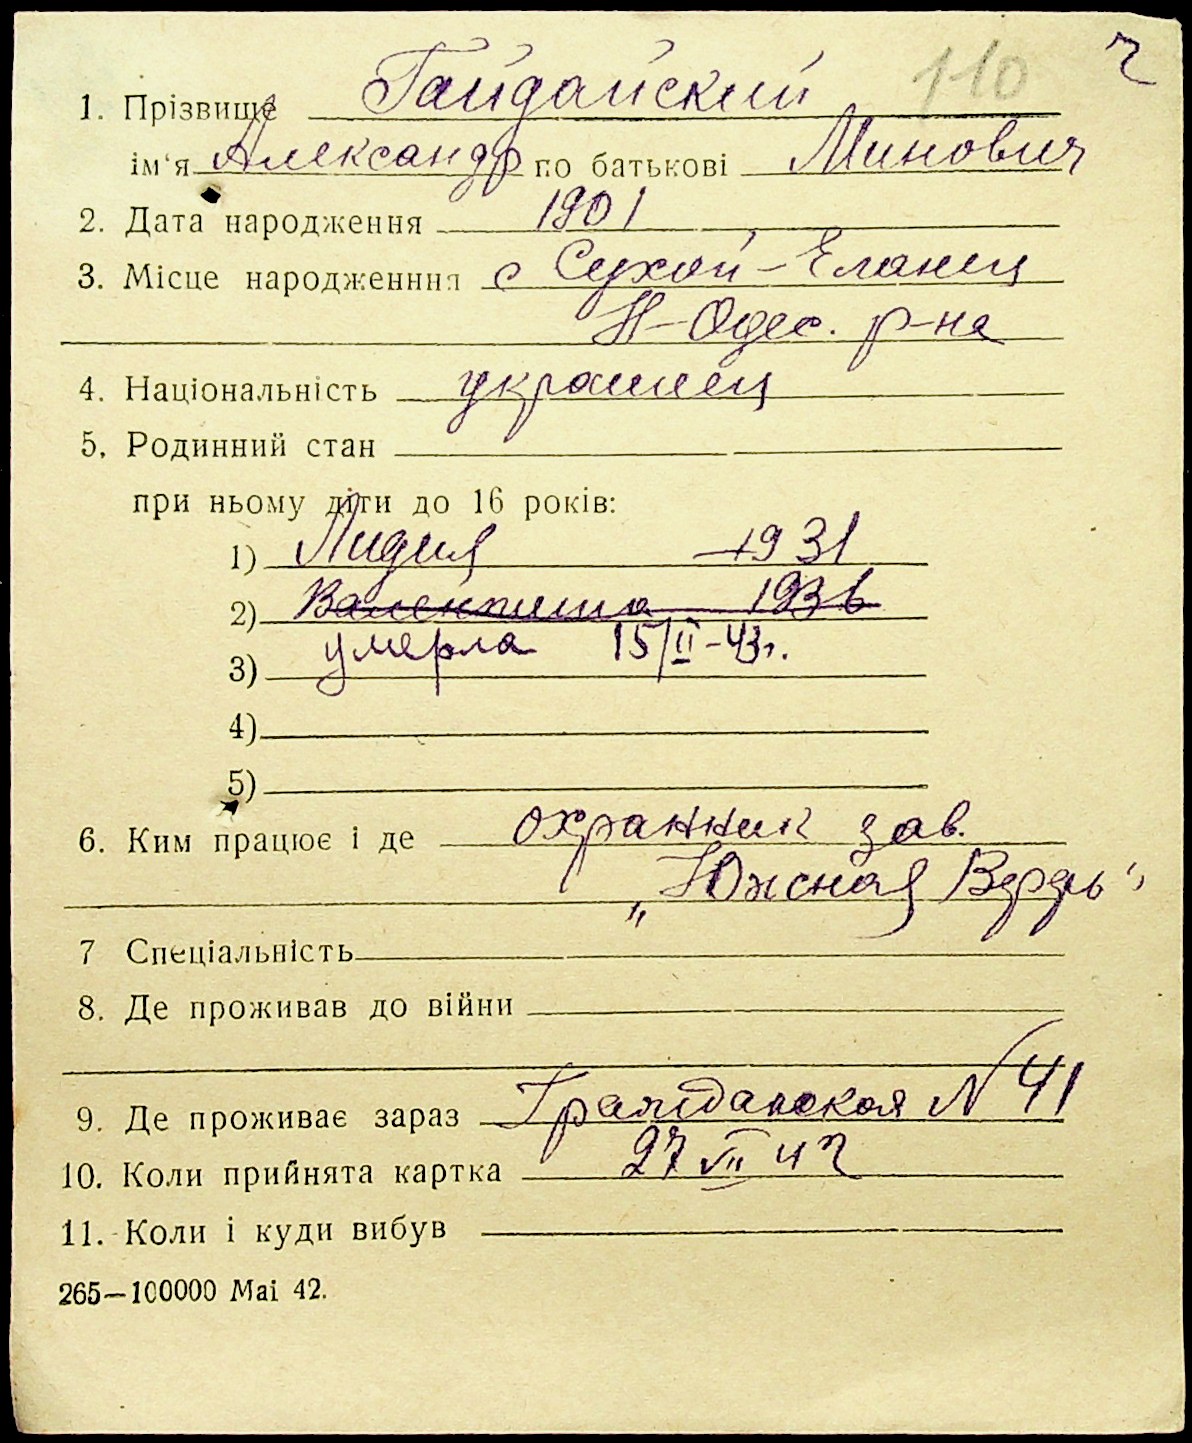 110 ч
1. Прізвище Гайдайский
ім'я Александр по батькові Минович
2. Дата народження 1901
3. Місце народженння с Сухой-Еланец
Н-Одес. р-на
4. Національність украинец
5. Родинний стан
при ньому діти до 16 років:
1) Лидия 1931
2) Валентина 1936
3) умерла 15/II-43г.
4)
5)
6. Ким працює і де охранник зав.
„Южная Верфь"
7 Спеціальність
8. Де проживав до війни
9. Де проживає зараз Гражданская N 41
10. Коли прийнята картка 27 VII 42
11. Коли і куди вибув
265—100000 Mai 42.